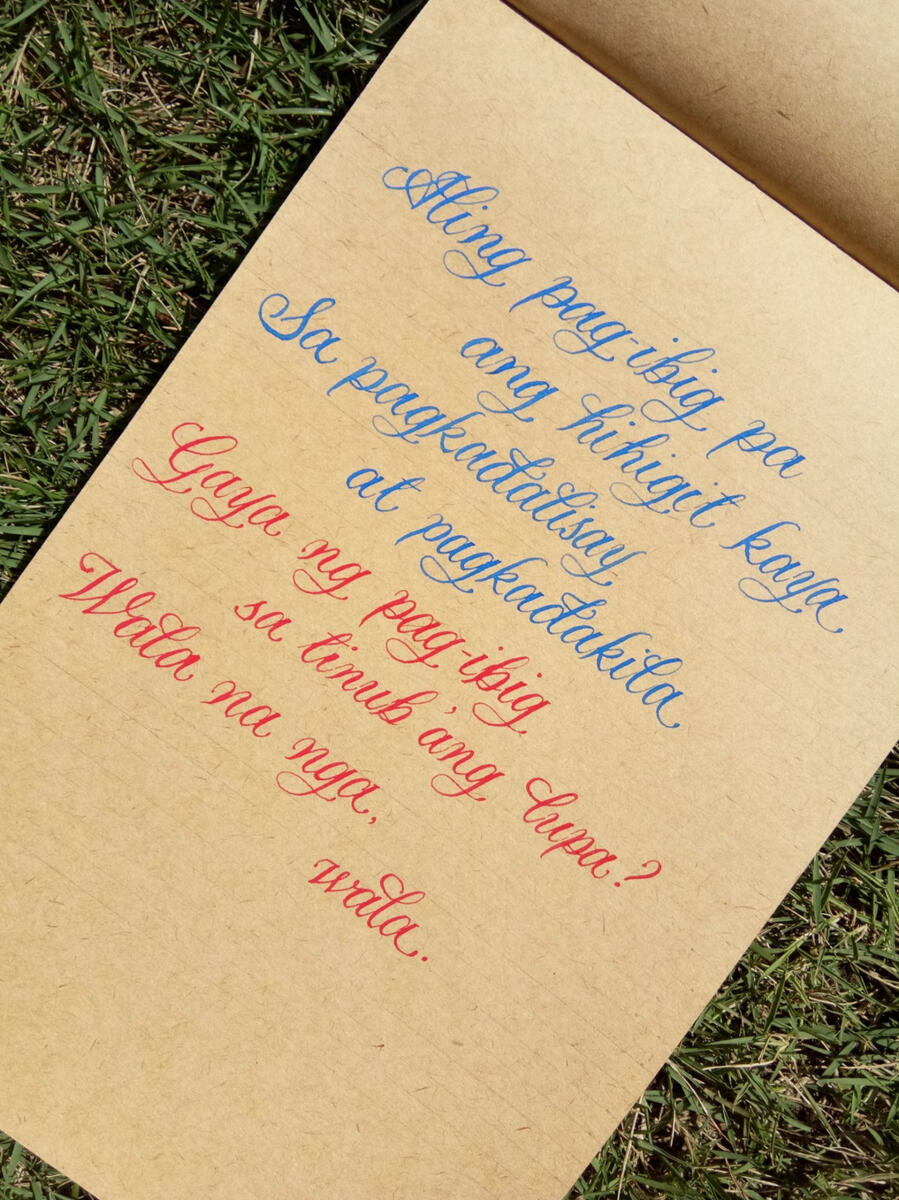 Aling pag-ibig pa
ang hihigit kaya
Sa pagkadalisay
at pagkadakila
Gaya ng pag-ibig
sa tinub'ang lupa?
Wala na nga,
wala.